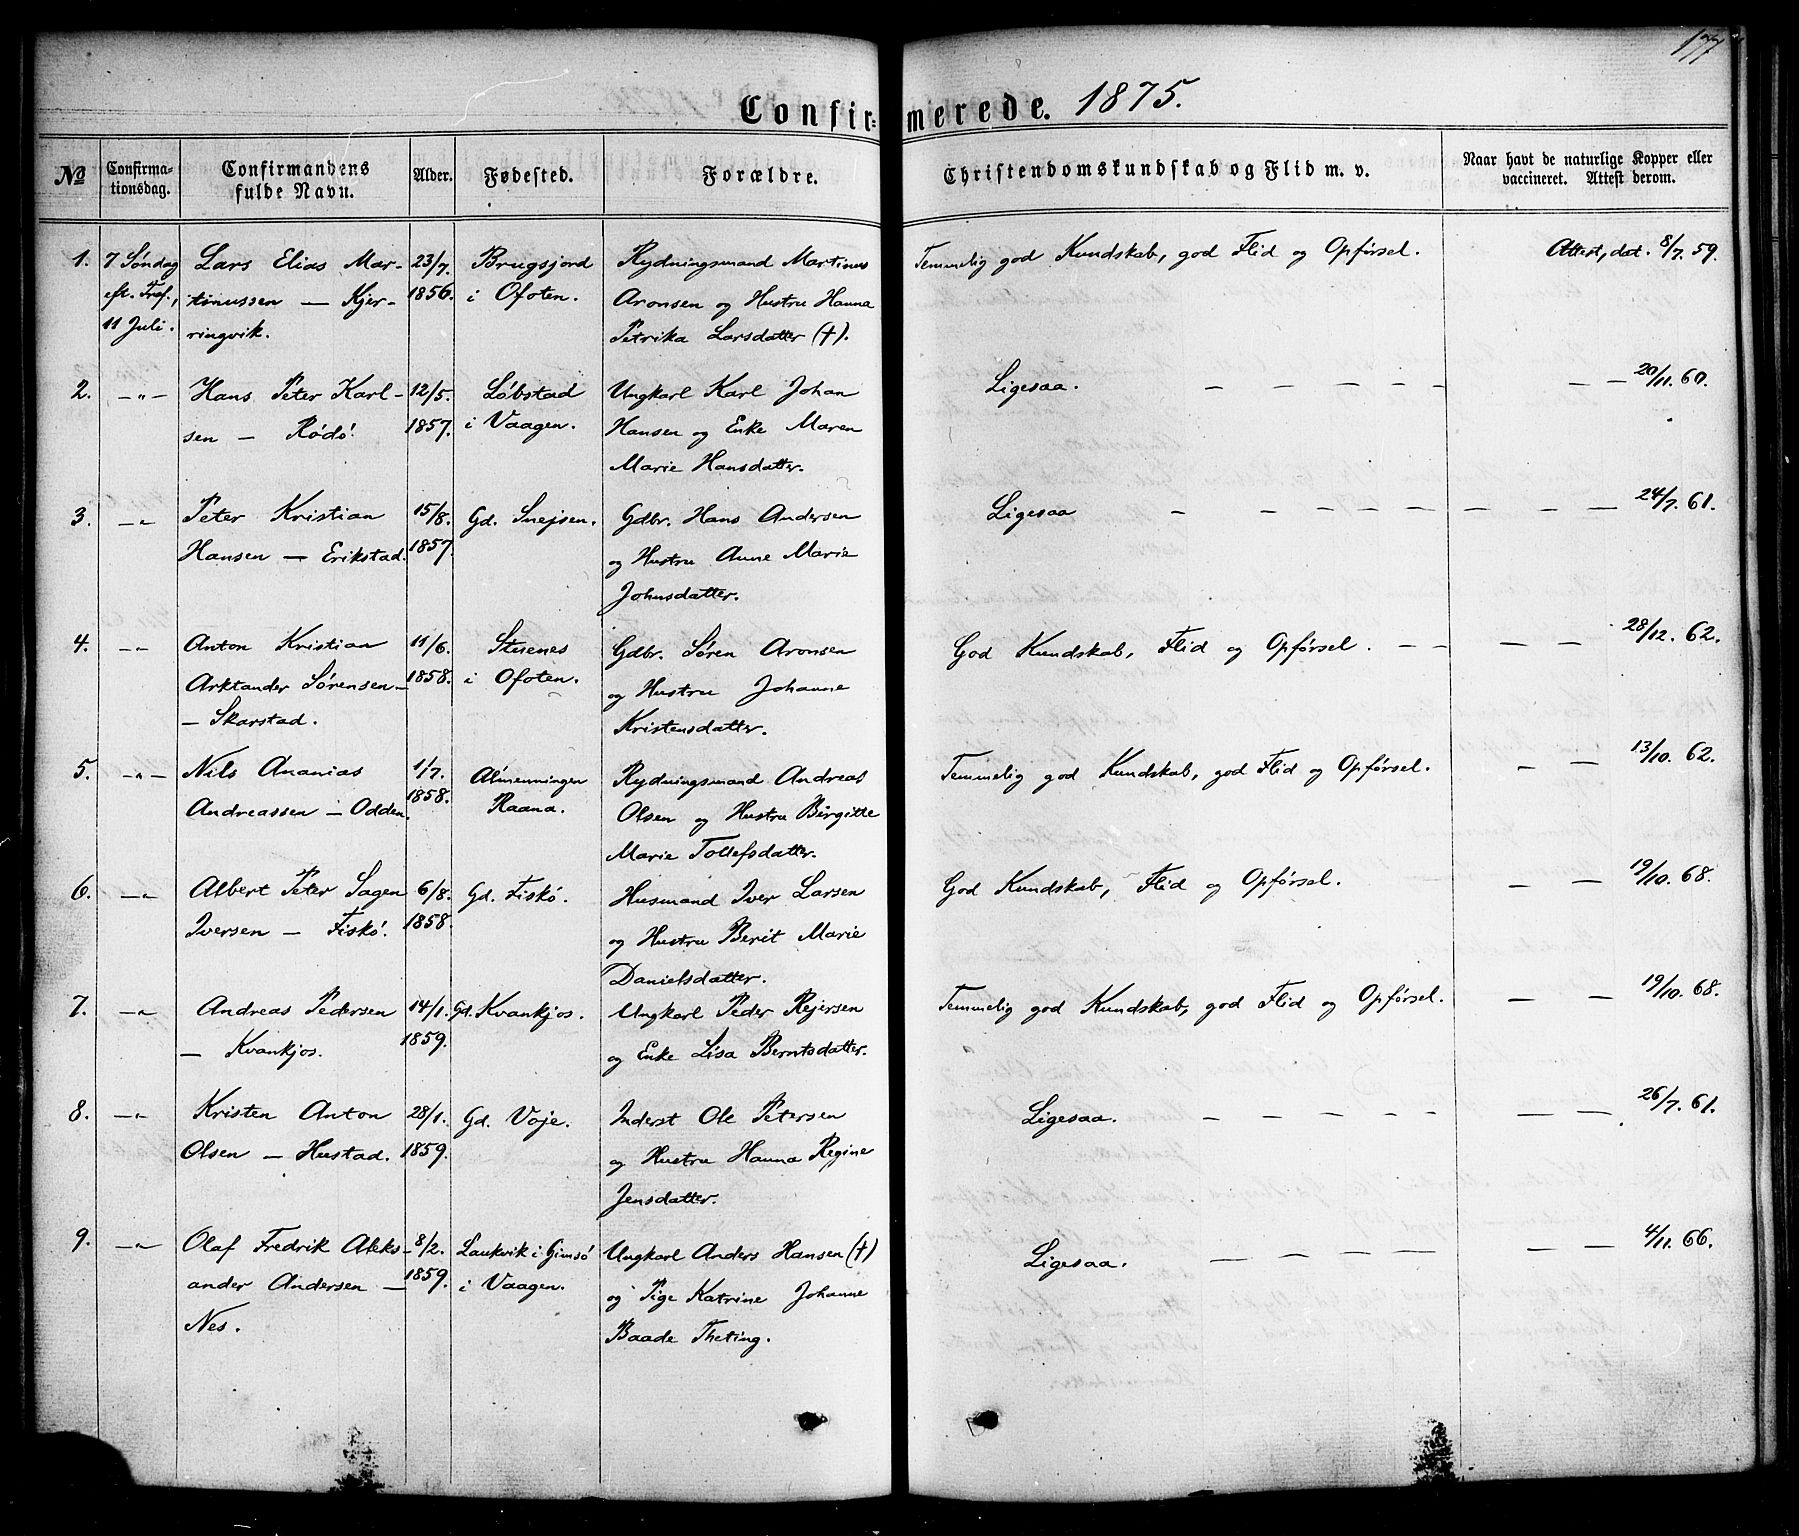 177
Confirmerede. 1875.
№
Confirmationsdag.
Confirmandens fulde Navn.
Alder.
Fødested.
Forældre.
Christendomskundskab og Flid m. v.
Naar havt de naturlige Kopper eller vaccineret. Attest derom.
1. 7 Søndag Lars Elias Mar- 23/7. Brugsjord Rydningsmand Martinus Temmelig god Kundskab, god Flid og Opførsel. Attest, dat. 8/7. 59.
eft. Tref., tinussen — Kjer- 1856. i Ofoten. Aronsen og Hustru Hanna
11 Juli. ringvik. Petrika Larsdatter (†).
2. —"— Hans Peter Karl- 12/5. Løbstad Ungkarl Karl Johan Ligesaa. — — — — — — — 20/11. 60.
sen — Rødø. 1857. i Vaagen. Hansen og Enke Maren
Marie Hansdatter.
3. —"— Peter Kristian 15/8. Gd. Snejsen. Gdbr. Hans Andersen Ligesaa — — — — — — — — — 24/7. 61.
Hansen — Erikstad. 1857. og Hustru Anne Marie
Johnsdatter.
4. —"— Anton Kristian 11/6. Stuenes Gdbr. Søren Aronsen God Kundskab, Flid og Opførsel. — — — — — 28/12. 62.
Arktander Sørensen — 1858. i Ofoten. og Hustru Johanne
— Skarstad. Kristensdatter.
5. —"— Nils Ananias 1/7. Almenningen Rydningsmand Andreas Temmelig god Kundskab, god Flid og Opførsel. — — 13/10. 62.
Andreassen — Odden. 1858. Raana. Olsen og Hustru Birgitte
Marie Tollefsdatter.
6. —"— Albert Peter Sagen 6/8. Gd. Fiskø. Husmand Iver Larsen God Kundskab, Flid og Opførsel. — — 19/10. 68.
Iversen — Fiskø. 1858. og Hustru Berit Marie
Danielsdatter.
7. —"— Andreas Pedersen 14/1. Gd. Kvankjos. Ungkarl Peder Rejersen Temmelig god Kundskab, god Flid og Opførsel. — — 19/10. 68.
— Kvankjos. 1859. og Enke Lisa Berntsdatter.
8. —"— Kristen Anton 28/1. Gd. Voje. Inderst Ole Petersen Ligesaa. — — — — — — — 26/7. 61.
Olsen — Hustad. 1859. og Hustru Hanna Regine
Jensdatter.
9. —"— Olaf Fredrik Aleks- 8/2. Laukvik i Gimsø Ungkarl Anders Hansen (†) Ligesaa. — — — — — — 4/11. 66.
ander Andersen — 1859. i Vaagen. og Pige Katrine Johanne
Nes. Baade Theting.